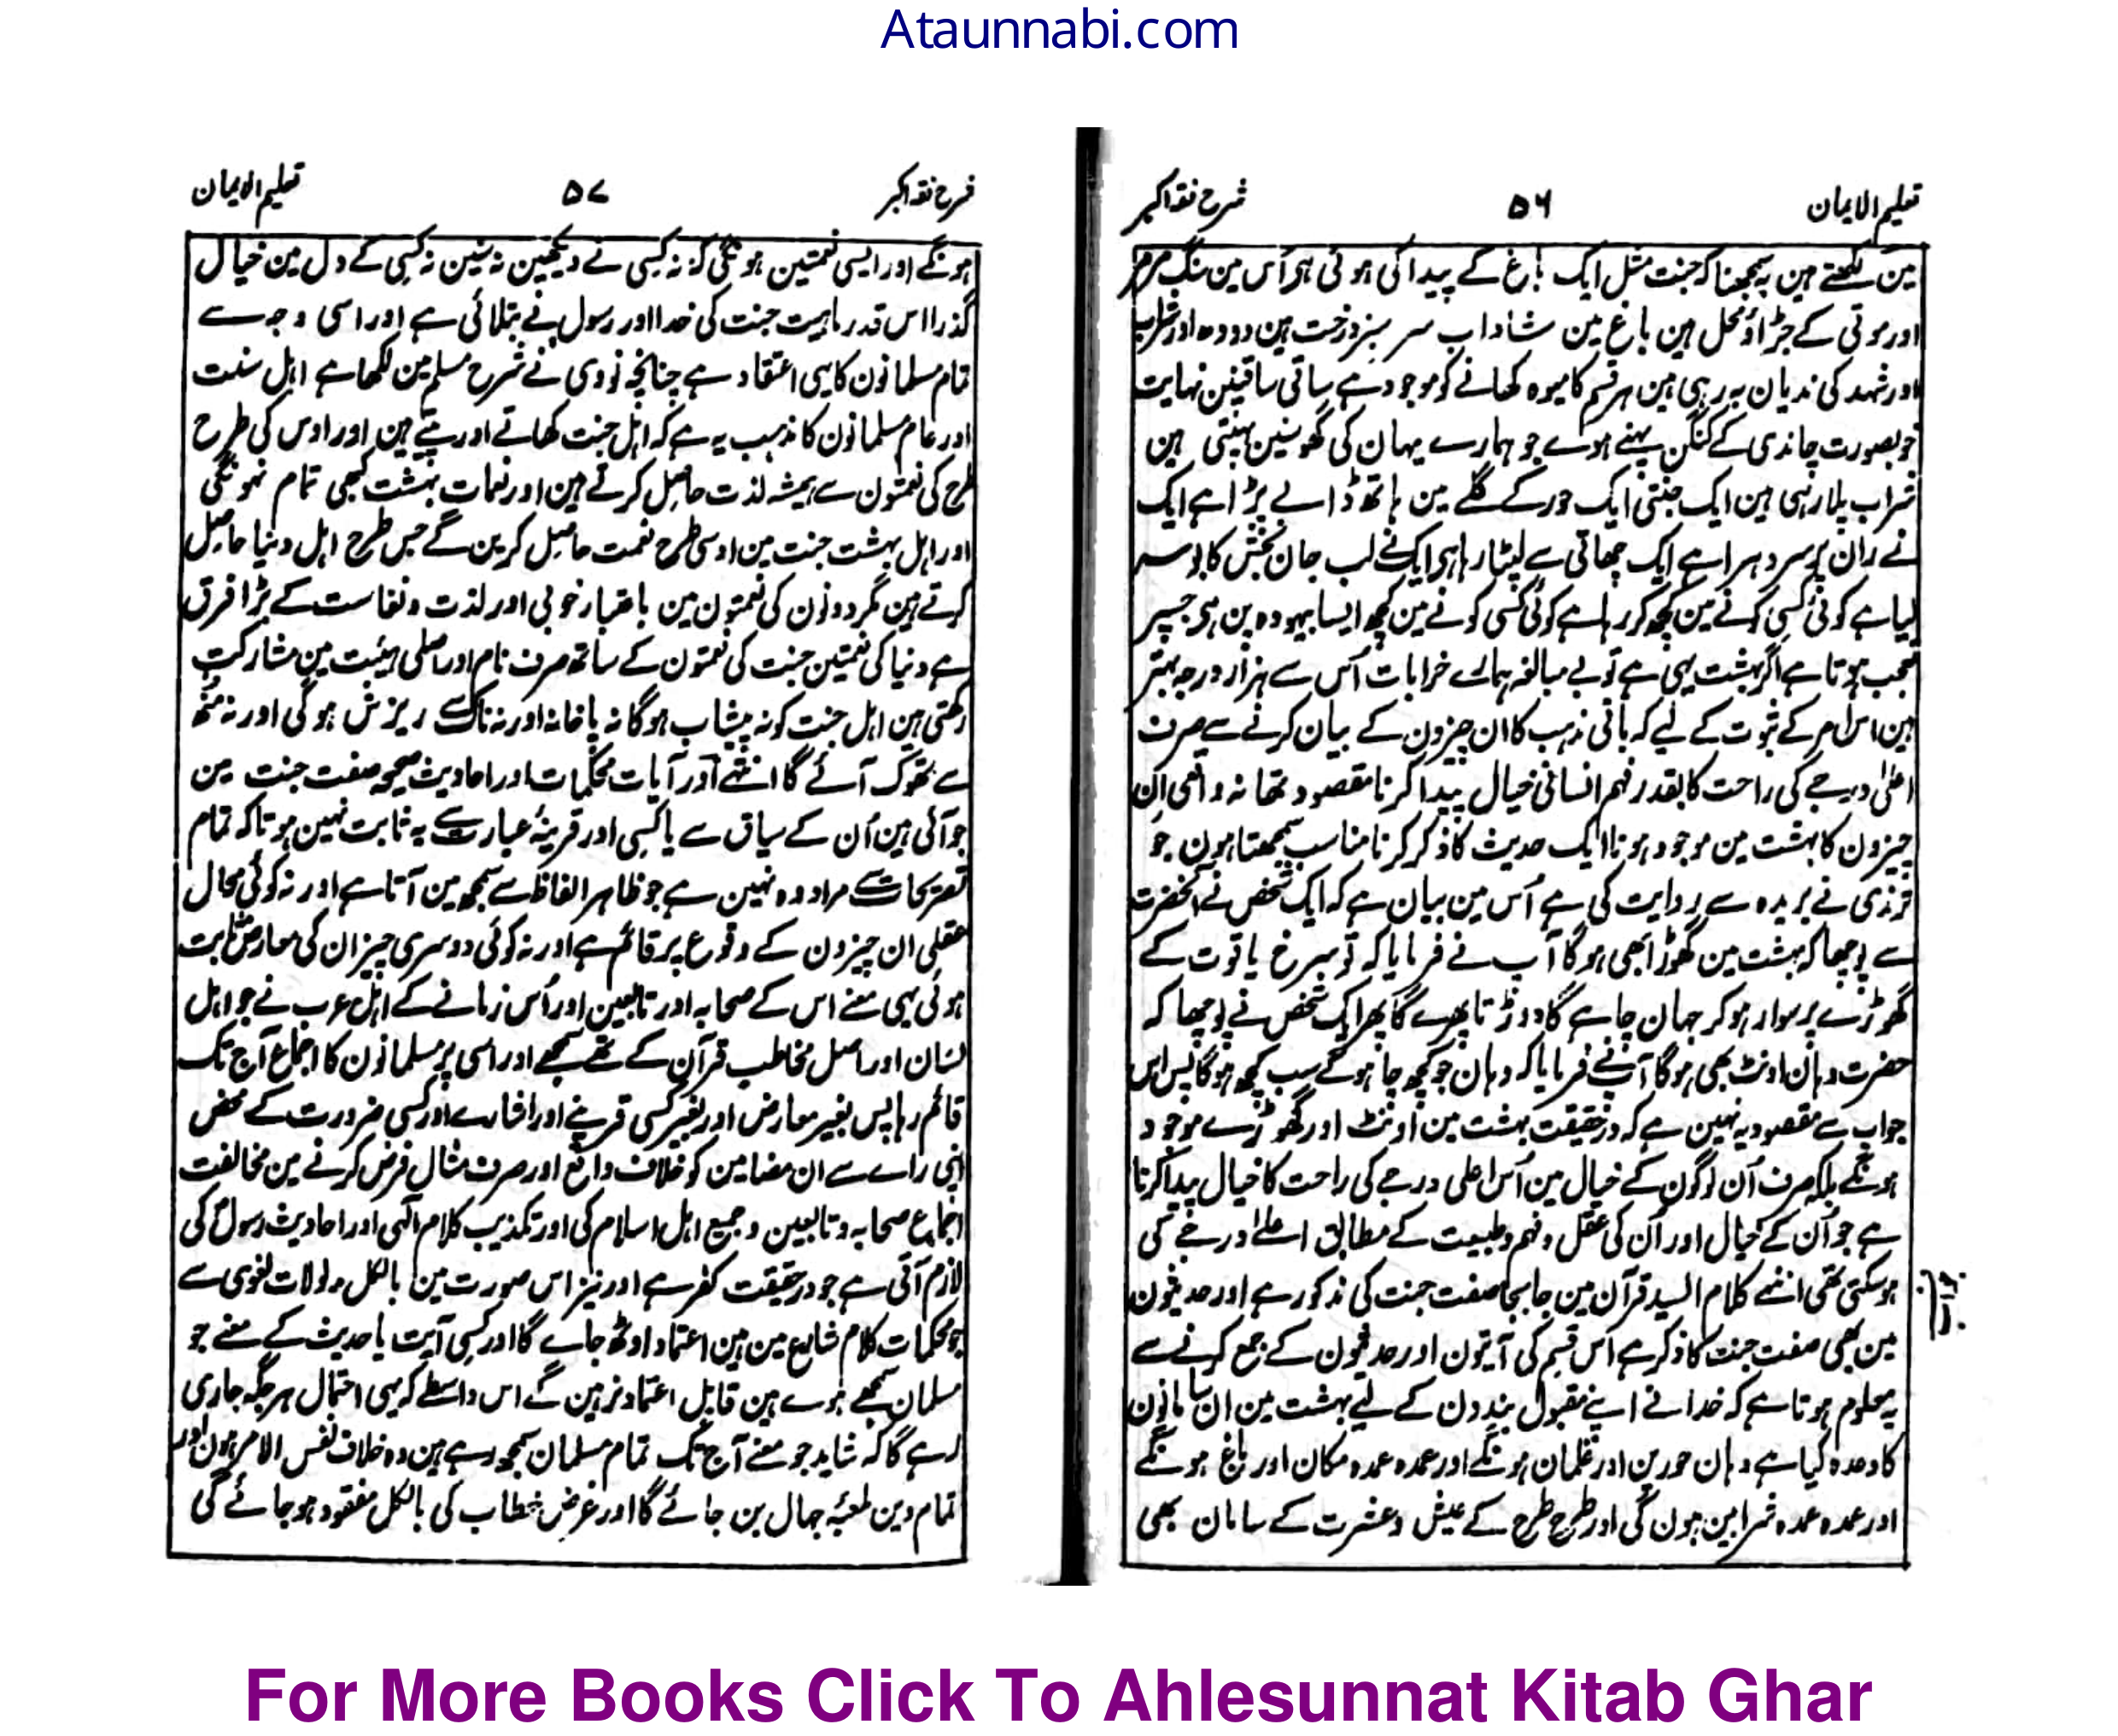 Ataunnabi.com
تعلیم الایمان ۵۶ شرح فقہ اکبر
مین لکھتے مین یہ سمجھنا کہ جنت مثل ایک باغ کے پیدا کی ہوئی ہی اُس مین سنگ مرمر
اور موتی کے جڑاؤ محل ہین باغ مین شاداب سر سبز درخت ہین دودہ اور شراب
اور شہد کی ندیان بہ رہی ہین ہر قسم کا میوہ کھانے کو موجود ہے ساقی ساقنین نہایت
خوبصورت چاندی کے کنگن پہنے ہوے جو ہمارے یہان کی گھوسنین پہنتی ہین
شراب پلا رہی ہین ایک جنتی ایک حور کے گلے مین ہاتھ ڈالے پڑا ہے ایک
نے ران پر سر دہرا ہے ایک چھاتی سے لپٹا رہا ہی ایک نے لب جان بخش کا بوسہ
لیا ہے کوئی کسی کونے مین کچھ کر رہا ہے کوئی کسی کونے مین کچھ ایسا بیہودہ پن ہی جسپر
تعجب ہوتا ہے اگر بہشت یہی ہے تو بے مبالغہ ہمارے خرابات اُس سے ہزار درجہ بہتر
ہین اس امر کے ثبوت کے لیے کہ بانی مذہب کا ان چیزون کے بیان کرنے سے صرف
اعلٰی درجے کی راحت کا بقدر فہم انسانی خیال پیدا کرنا مقصود تھا نہ واقعی ان
چیزون کا بہشت مین موجود ہونا ایک حدیث کا ذکر کرنا مناسب سمجھتا ہون جو
ترمذی نے بریدہ سے روایت کی ہے اُس مین بیان ہے کہ ایک شخص نے آنحضرت
سے پوچھا کہ بہشت مین گھوڑا بھی ہوگا آپ نے فرمایا کہ تو سرخ یاقوت کے
گھوڑے پر سوار ہو کر جہان چاہے گا دوڑتا پھرے گا پھر ایک شخص نے پوچھا کہ
حضرت وہان اونٹ بھی ہوگا آپنے فرمایا کہ وہان جو کچھ چاہوگے سب کچھ ہوگا پس اس
جواب سے مقصود یہ نہین ہے کہ درحقیقت بہشت مین اونٹ اور گھوڑے موجود
ہونگے بلکہ صرف اُن لوگون کے خیال مین اُس اعلی درجے کی راحت کا خیال پیدا کرنا
ہے جو اُن کے خیال اور اُن کی عقل و فہم و طبیعت کے مطابق اعلے درجے کی
ہوسکتی تھی انتہے کلام السید قرآن مین جابجا صفت جنت کی مذکور ہے اور حدیثون
مین بھی صفت جنت کا ذکر ہے اس قسم کی آیتون اور حدیثون کے جمع کرنے سے
یہ معلوم ہوتا ہے کہ خدا نے اپنے مقبول بندون کے لیے بہشت مین ان سامانون
کا وعدہ کیا ہے وہان حورین اور غلمان ہونگے اور عمدہ عمدہ مکان اور باغ ہونگے
اور عمدہ عمدہ شرابین ہون گی اور طرح طرح کے عیش و عشرت کے سامان بھی
شرح فقہ اکبر ۵۷ تعلیم الایمان
ہونگے اور ایسی نعمتین ہونگی کہ نہ کسی نے دیکھین نہ سنین نہ کسی کے دل مین خیال
گذرا اس قدر ماہیت جنت کی خدا اور رسول نے بتلائی ہے اور اسی وجہ سے
تمام مسلمانون کا یہی اعتقاد ہے چنانچہ نووی نے شرح مسلم مین لکھا ہے اہل سنت
اور عام مسلمانون کا مذہب یہ ہے کہ اہل جنت کھاتے اور پیتے ہین اور اوس کی طرح
طرح کی نعمتون سے ہمیشہ لذت حاصل کرتے ہین اور نعمات بہشت کبھی تمام نہونگی
اور اہل بہشت جنت مین اوسی طرح نعمت حاصل کرین گے جس طرح اہل دنیا حاصل
کرتے ہین مگر دونون کی نعمتون مین باعتبار خوبی اور لذت و نفاست کے بڑا فرق
ہے دنیا کی نعمتین جنت کی نعمتون کے ساتھ صرف نام اور اصلی ہیئت مین مشارکت
رکھتی ہین اہل جنت کو نہ پیشاب ہوگا نہ پاخانہ اور نہ ناک سے ریزش ہوگی اور نہ منھ
سے تھوک آئے گا انتہے اور آیات محکمات اور احادیث صحیحہ صفت جنت مین
جو آئی ہین اُن کے سیاق سے یا کسی اور قرینۂ عبارت سے یہ ثابت نہین ہوتا کہ تمام
تصریحات سے مراد وہ نہین ہے جو ظاہر الفاظ سے سمجھ مین آتا ہے اور نہ کوئی محال
عقلی ان چیزون کے وقوع پر قائم ہے اور نہ کوئی دوسری چیز ان کی معارض ثابت
ہوئی یہی معنے اس کے صحابہ اور تابعین اور اُس زمانے کے اہل عرب نے جو اہل
لسان اور اصل مخاطب قرآن کے تھے سمجھے اور اسی پر مسلمانون کا اجماع آج تک
قائم رہا پس بغیر معارض اور بغیر کسی قرینے اور اشارے اور کسی ضرورت کے محض
اپنی راے سے ان مضامین کو خلاف واقع اور صرف مثال فرض کرنے مین مخالفت
اجماع صحابہ و تابعین و جمیع اہل اسلام کی اور تکذیب کلام الٰہی اور احادیث رسول کی
لازم آتی ہے جو درحقیقت کفر ہے اور نیز اس صورت مین بالکل مدلولات لغوی سے
جو محکمات کلام شارع مین ہین اعتماد اوٹھ جاے گا اور کسی آیت یا حدیث کے معنے جو
مسلمان سمجھے ہوے ہین قابل اعتماد نرہین گے اس واسطے کہ یہی احتمال ہر جگہ جاری
رہے گا کہ شاید جو معنے آج تک تمام مسلمان سمجھ رہے ہین وہ خلاف نفس الامر ہون اور
تمام دین لعبۂ جہال بن جائے گا اور غرض خطاب کی بالکل مفقود ہو جائے گی
For More Books Click To Ahlesunnat Kitab Ghar